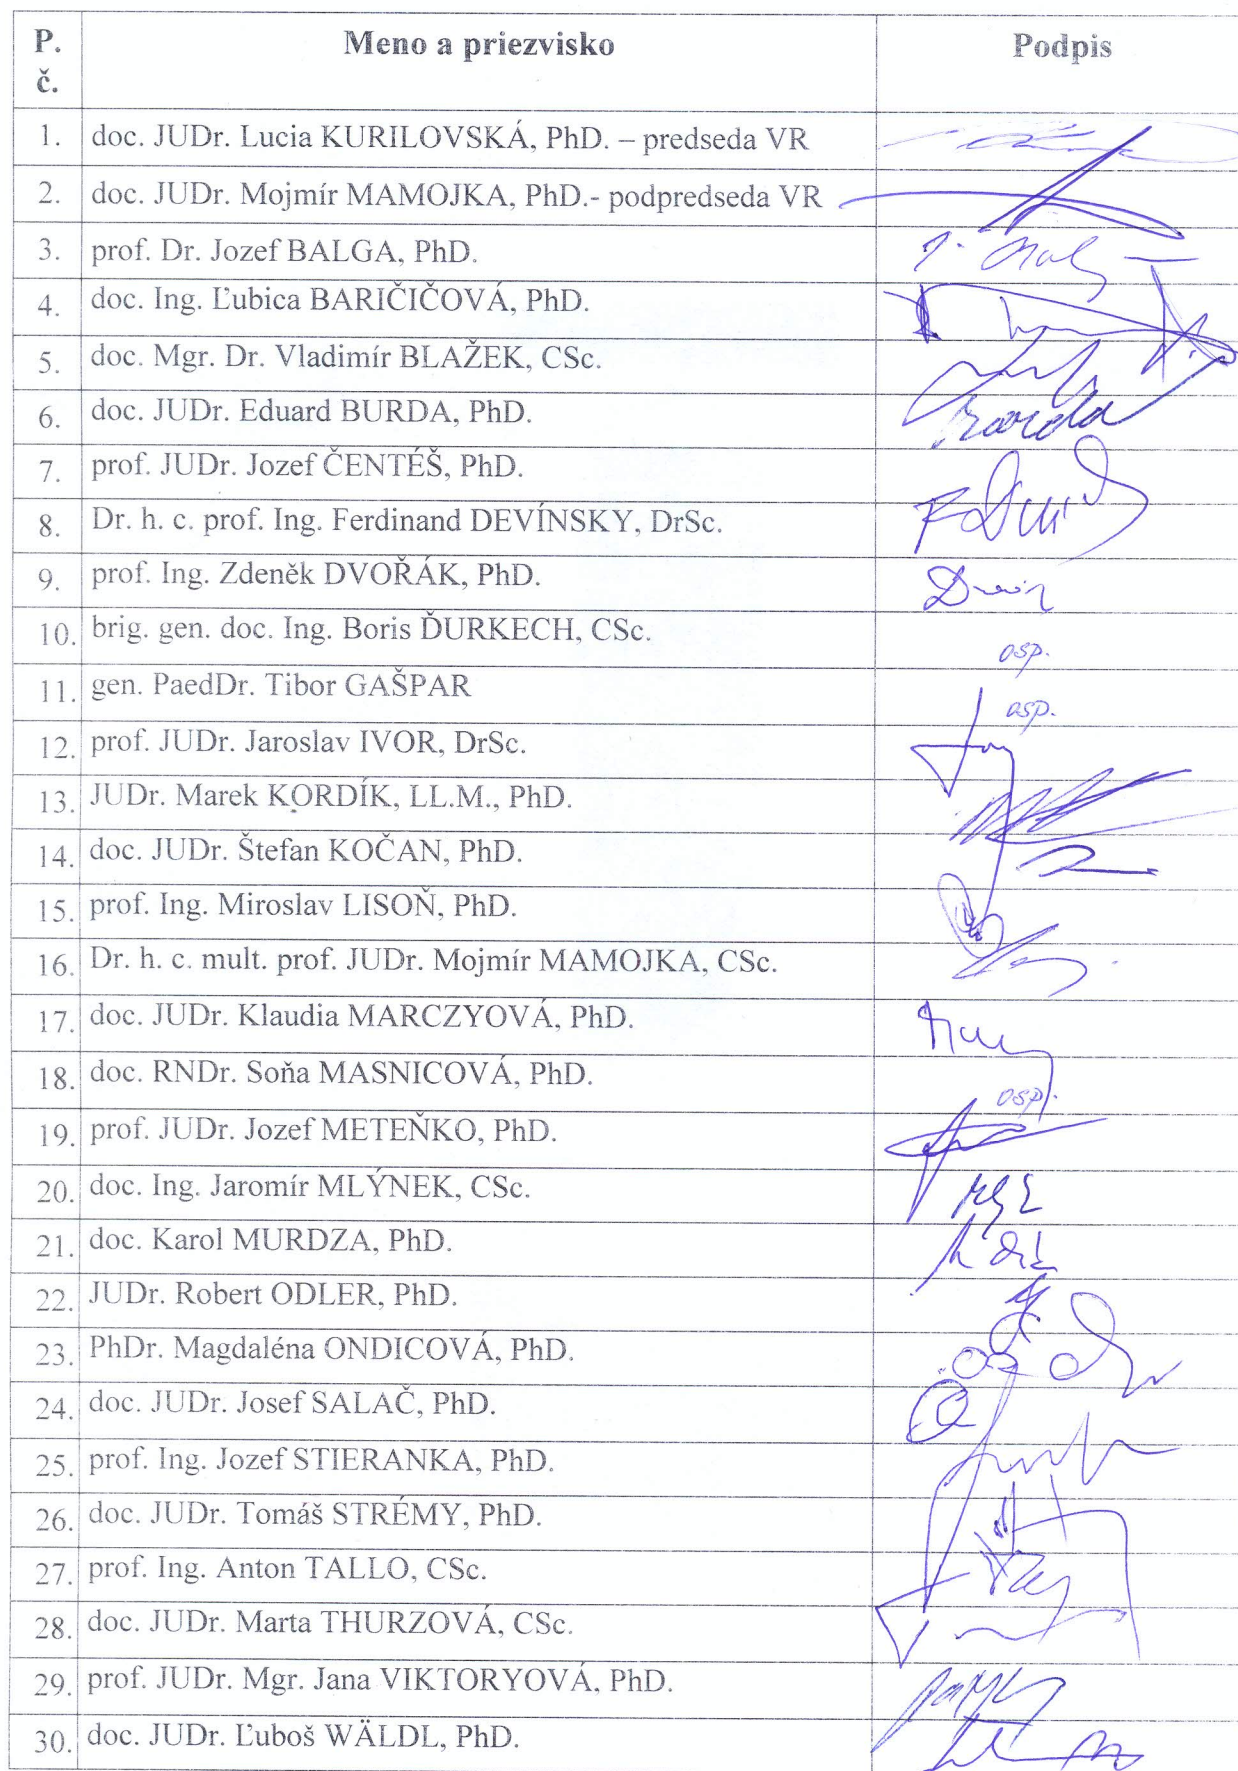 P. č. Meno a priezvisko Podpis
1. doc. JUDr. Lucia KURILOVSKÁ, PhD. – predseda VR
2. doc. JUDr. Mojmír MAMOJKA, PhD.- podpredseda VR
3. prof. Dr. Jozef BALGA, PhD.
4. doc. Ing. Ľubica BARIČIČOVÁ, PhD.
5. doc. Mgr. Dr. Vladimír BLAŽEK, CSc.
6. doc. JUDr. Eduard BURDA, PhD.
7. prof. JUDr. Jozef ČENTÉŠ, PhD.
8. Dr. h. c. prof. Ing. Ferdinand DEVÍNSKY, DrSc.
9. prof. Ing. Zdeněk DVOŘÁK, PhD.
10. brig. gen. doc. Ing. Boris ĎURKECH, CSc. osp.
11. gen. PaedDr. Tibor GAŠPAR osp.
12. prof. JUDr. Jaroslav IVOR, DrSc.
13. JUDr. Marek KORDÍK, LL.M., PhD.
14. doc. JUDr. Štefan KOČAN, PhD.
15. prof. Ing. Miroslav LISOŇ, PhD.
16. Dr. h. c. mult. prof. JUDr. Mojmír MAMOJKA, CSc.
17. doc. JUDr. Klaudia MARCZYOVÁ, PhD.
18. doc. RNDr. Soňa MASNICOVÁ, PhD. osp.
19. prof. JUDr. Jozef METEŇKO, PhD.
20. doc. Ing. Jaromír MLÝNEK, CSc.
21. doc. Karol MURDZA, PhD.
22. JUDr. Robert ODLER, PhD.
23. PhDr. Magdaléna ONDICOVÁ, PhD.
24. doc. JUDr. Josef SALAČ, PhD.
25. prof. Ing. Jozef STIERANKA, PhD.
26. doc. JUDr. Tomáš STRÉMY, PhD.
27. prof. Ing. Anton TALLO, CSc.
28. doc. JUDr. Marta THURZOVÁ, CSc.
29. prof. JUDr. Mgr. Jana VIKTORYOVÁ, PhD.
30. doc. JUDr. Ľuboš WÄLDL, PhD.